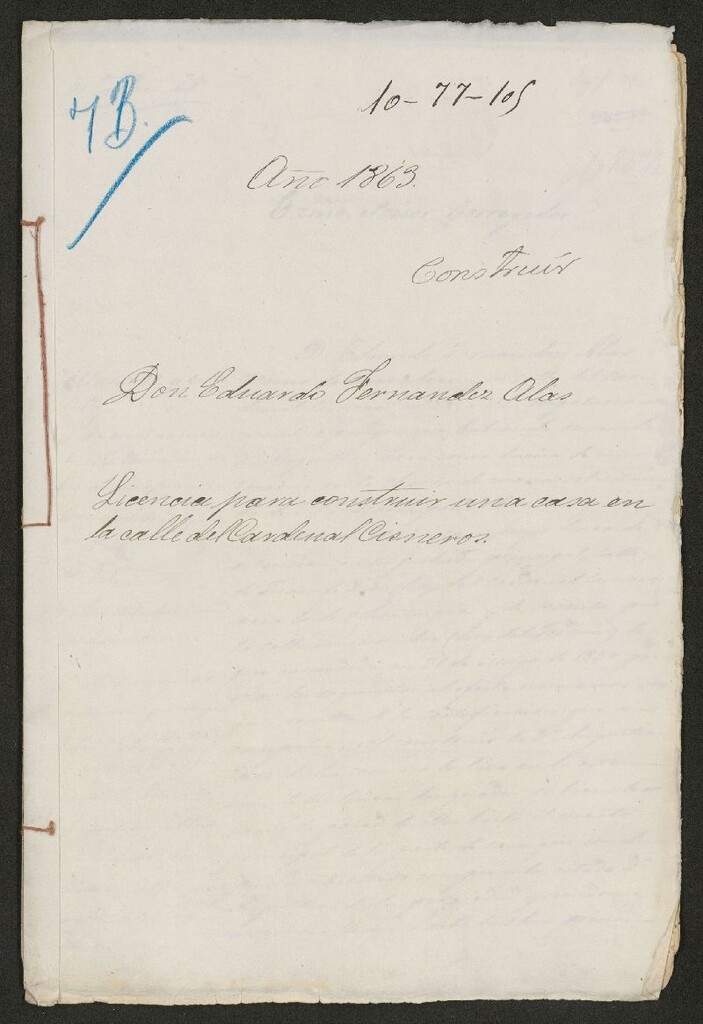 7B.
10-77-105
Año 1863.
Construir
Don Eduardo Fernandez Alas
Licencia para construir una casa en
la calle del Cardenal Cisneros.